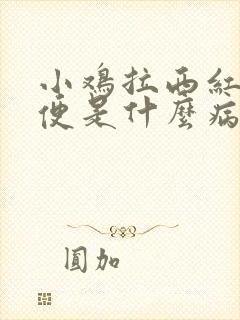 小鸡拉西红
便是什麼病
圓加